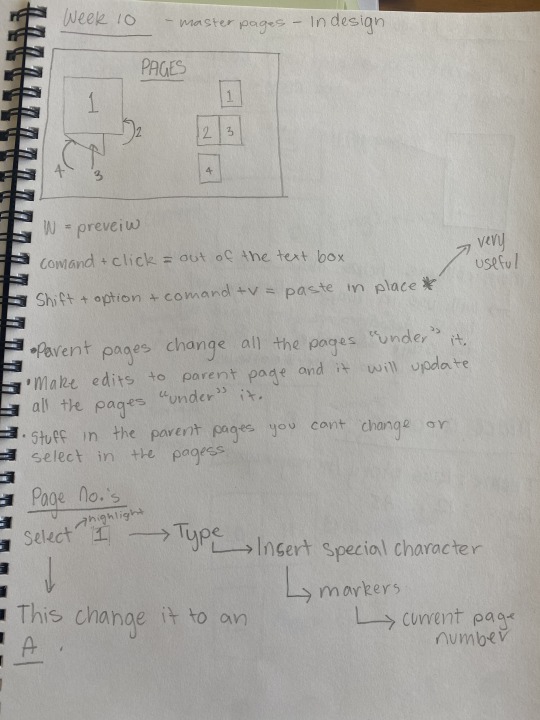 Week 10 - master pages - Indesign
PAGES
1
2
4
3
1
2 3
4
W = preveiw
comand + click = out of the text box
very
useful
Shift + option + comand + v = paste in place *
• Parent pages change all the pages "under" it.
• Make edits to parent page and it will update
all the pages "under" it.
• Stuff in the parent pages you cant change or
select in the pagess
Page No.'s
highlight
select 1 → Type
Insert special character
markers
current page
number
This change it to an
A .